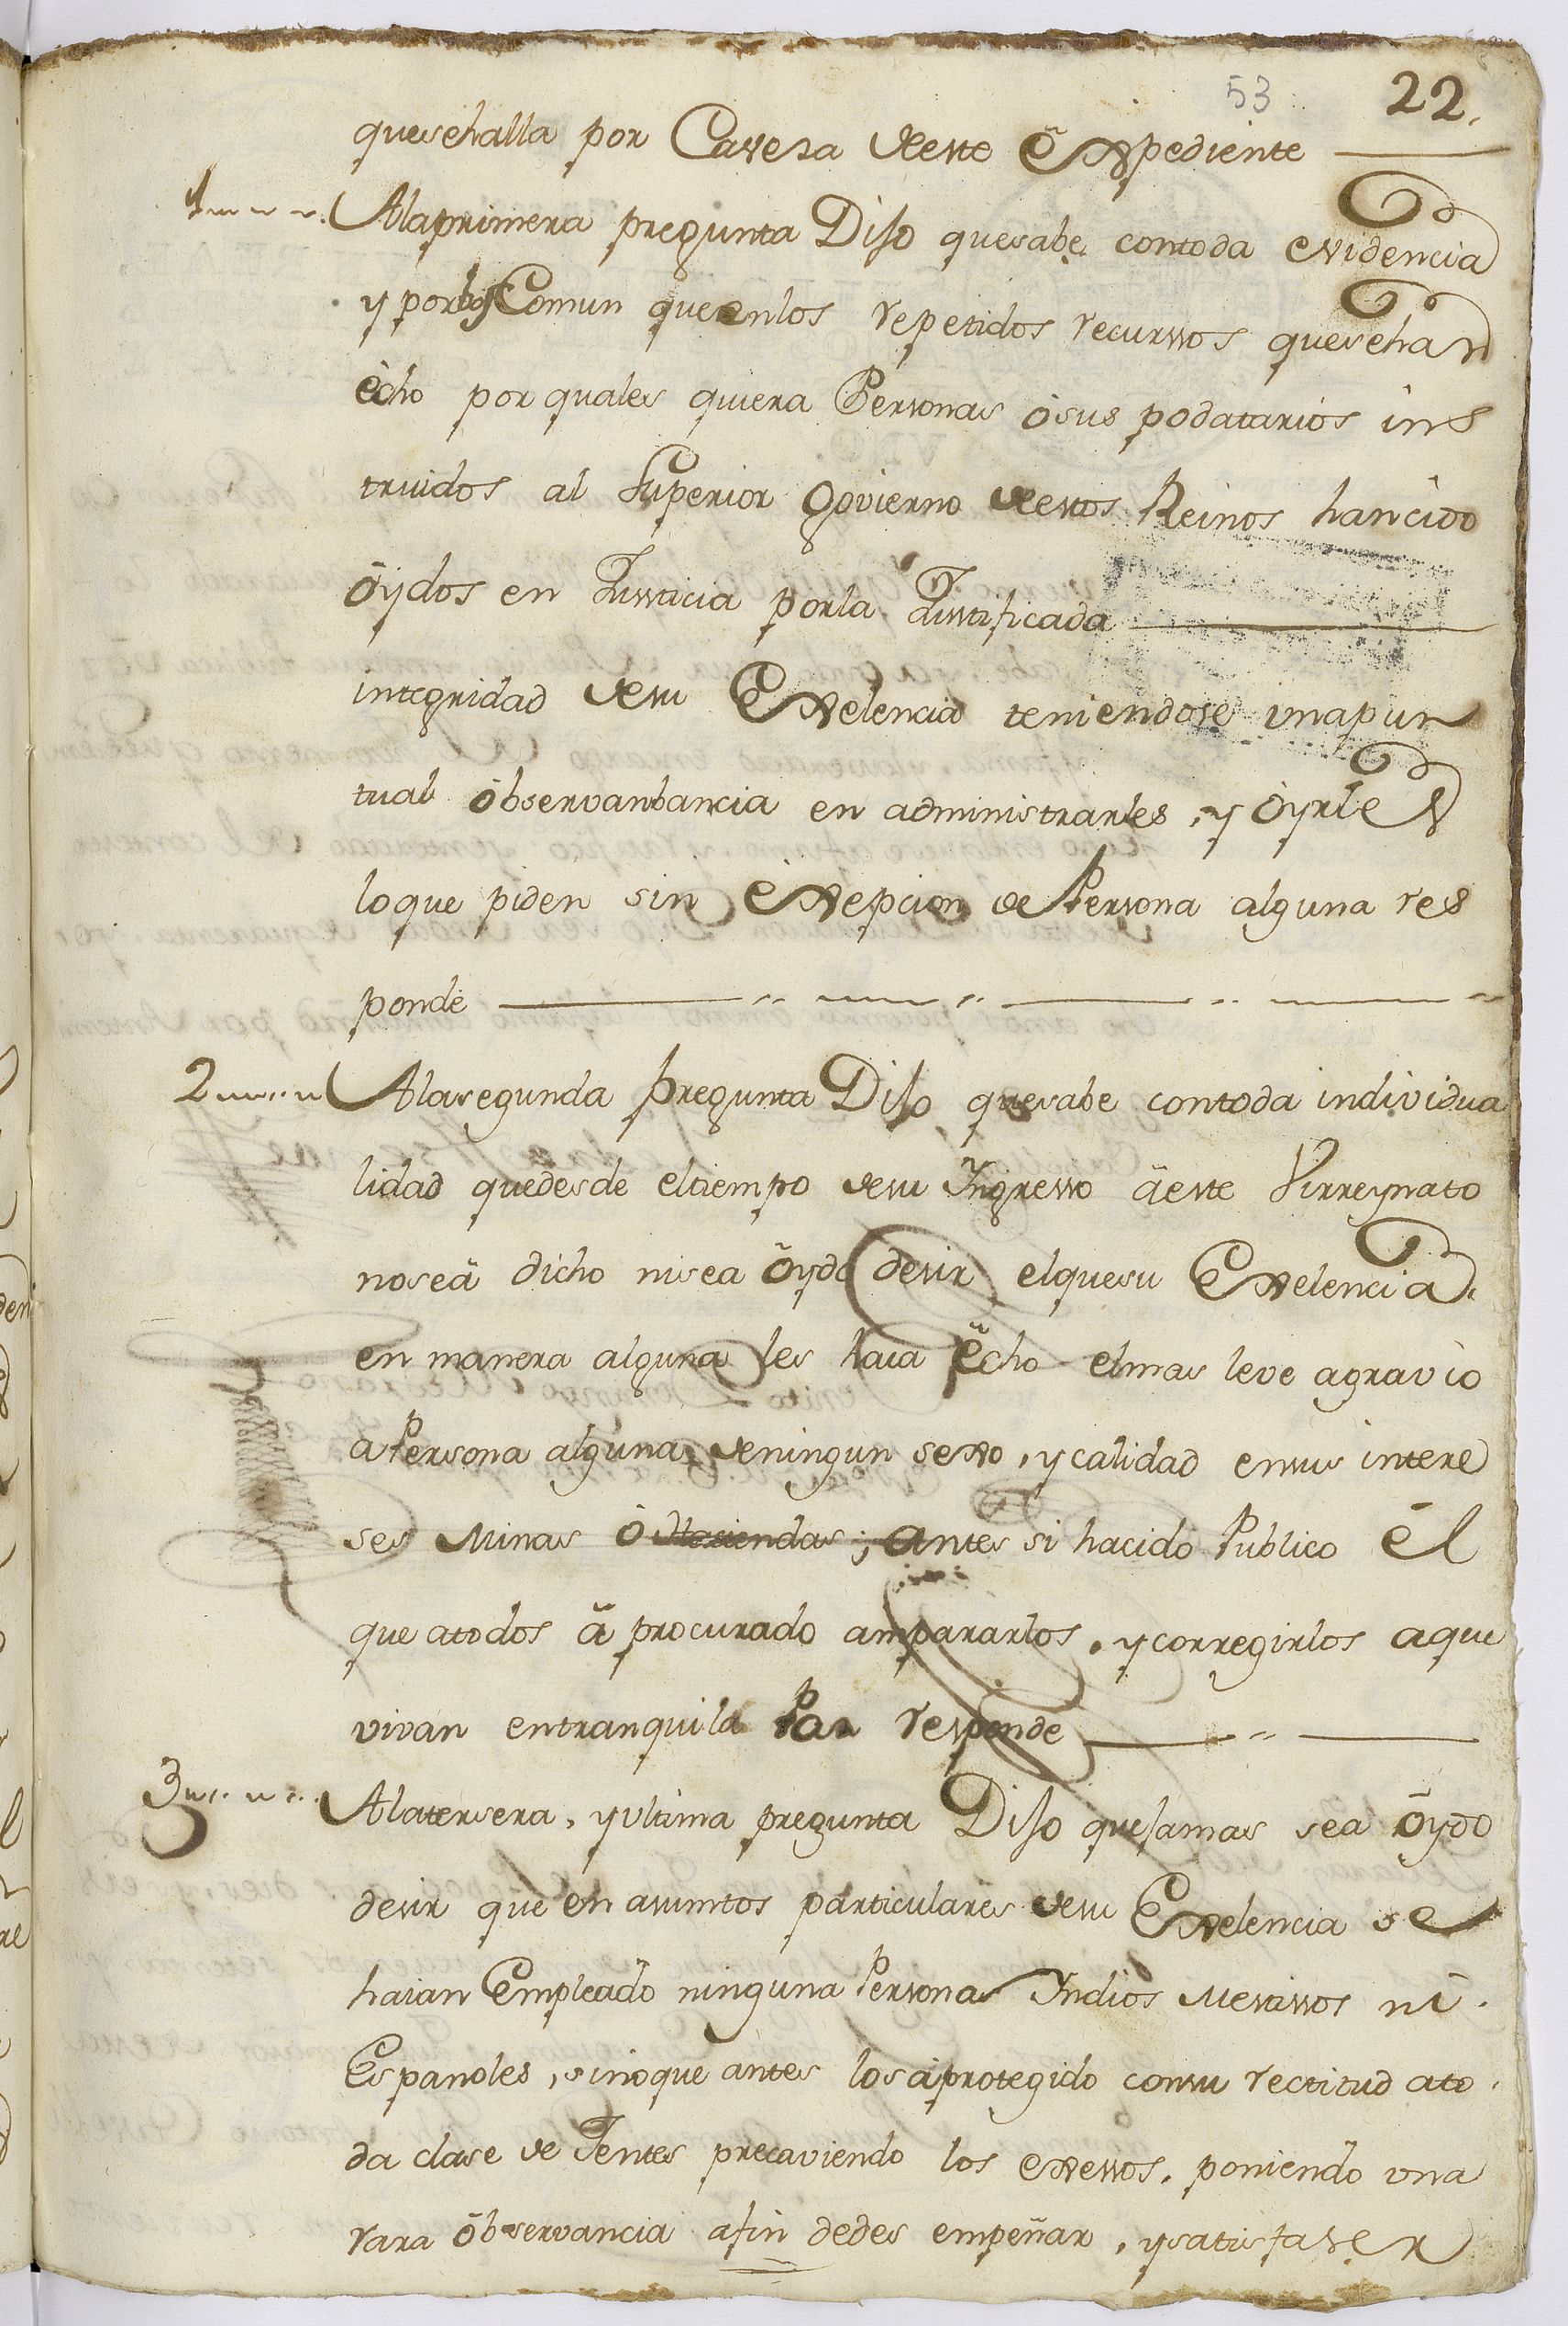 53 22.
quesehalla por Cavesa deeste Expediente
1 Alaprimera pregunta Dijo quesabe contoda evidencia
y porbos Comun queenlos repetidos recurssos quesehan
ëcho por quales quiera Personas ö sus podatarios ins
truidos al Superior Govierno deestos Reinos hancido
öydos en Justicia porla Justificada
integridad desu Exelencia teniendose unapun
tual öbservanbancia en administrarles, y öyrles
loque piden sin exepcion de Persona alguna res
ponde
2 Alasegunda pregunta Dijo quesabe contoda individua
lidad quedesde eltiempo desu Ingresso äeste Virreynato
noseä dicho nisea öydo desir elquesu Exelencia
en manera alguna les haia ëcho elmas leve agravio
a Persona alguna, deningun sexo, y calidad ensus intere
ses Minas ö Haciendas; antes si hacido Publico el
que atodos ä procurado ampararlos, y corregirlos aque
vivan entranquila Paz responde
3 Alatersera, y ultima pregunta Dijo quejamas sea öydo
desir que en asumtos particulares desu Exelencia se
haian Empleado ninguna Persona Indios Mestissos ni
Espanoles, sinoque antes losäprotegido consu rectitud ato
da clase de Jentes precaviendo los exessos, poniendo una
rara öbservancia afin dedes empeñar, y satisfaser